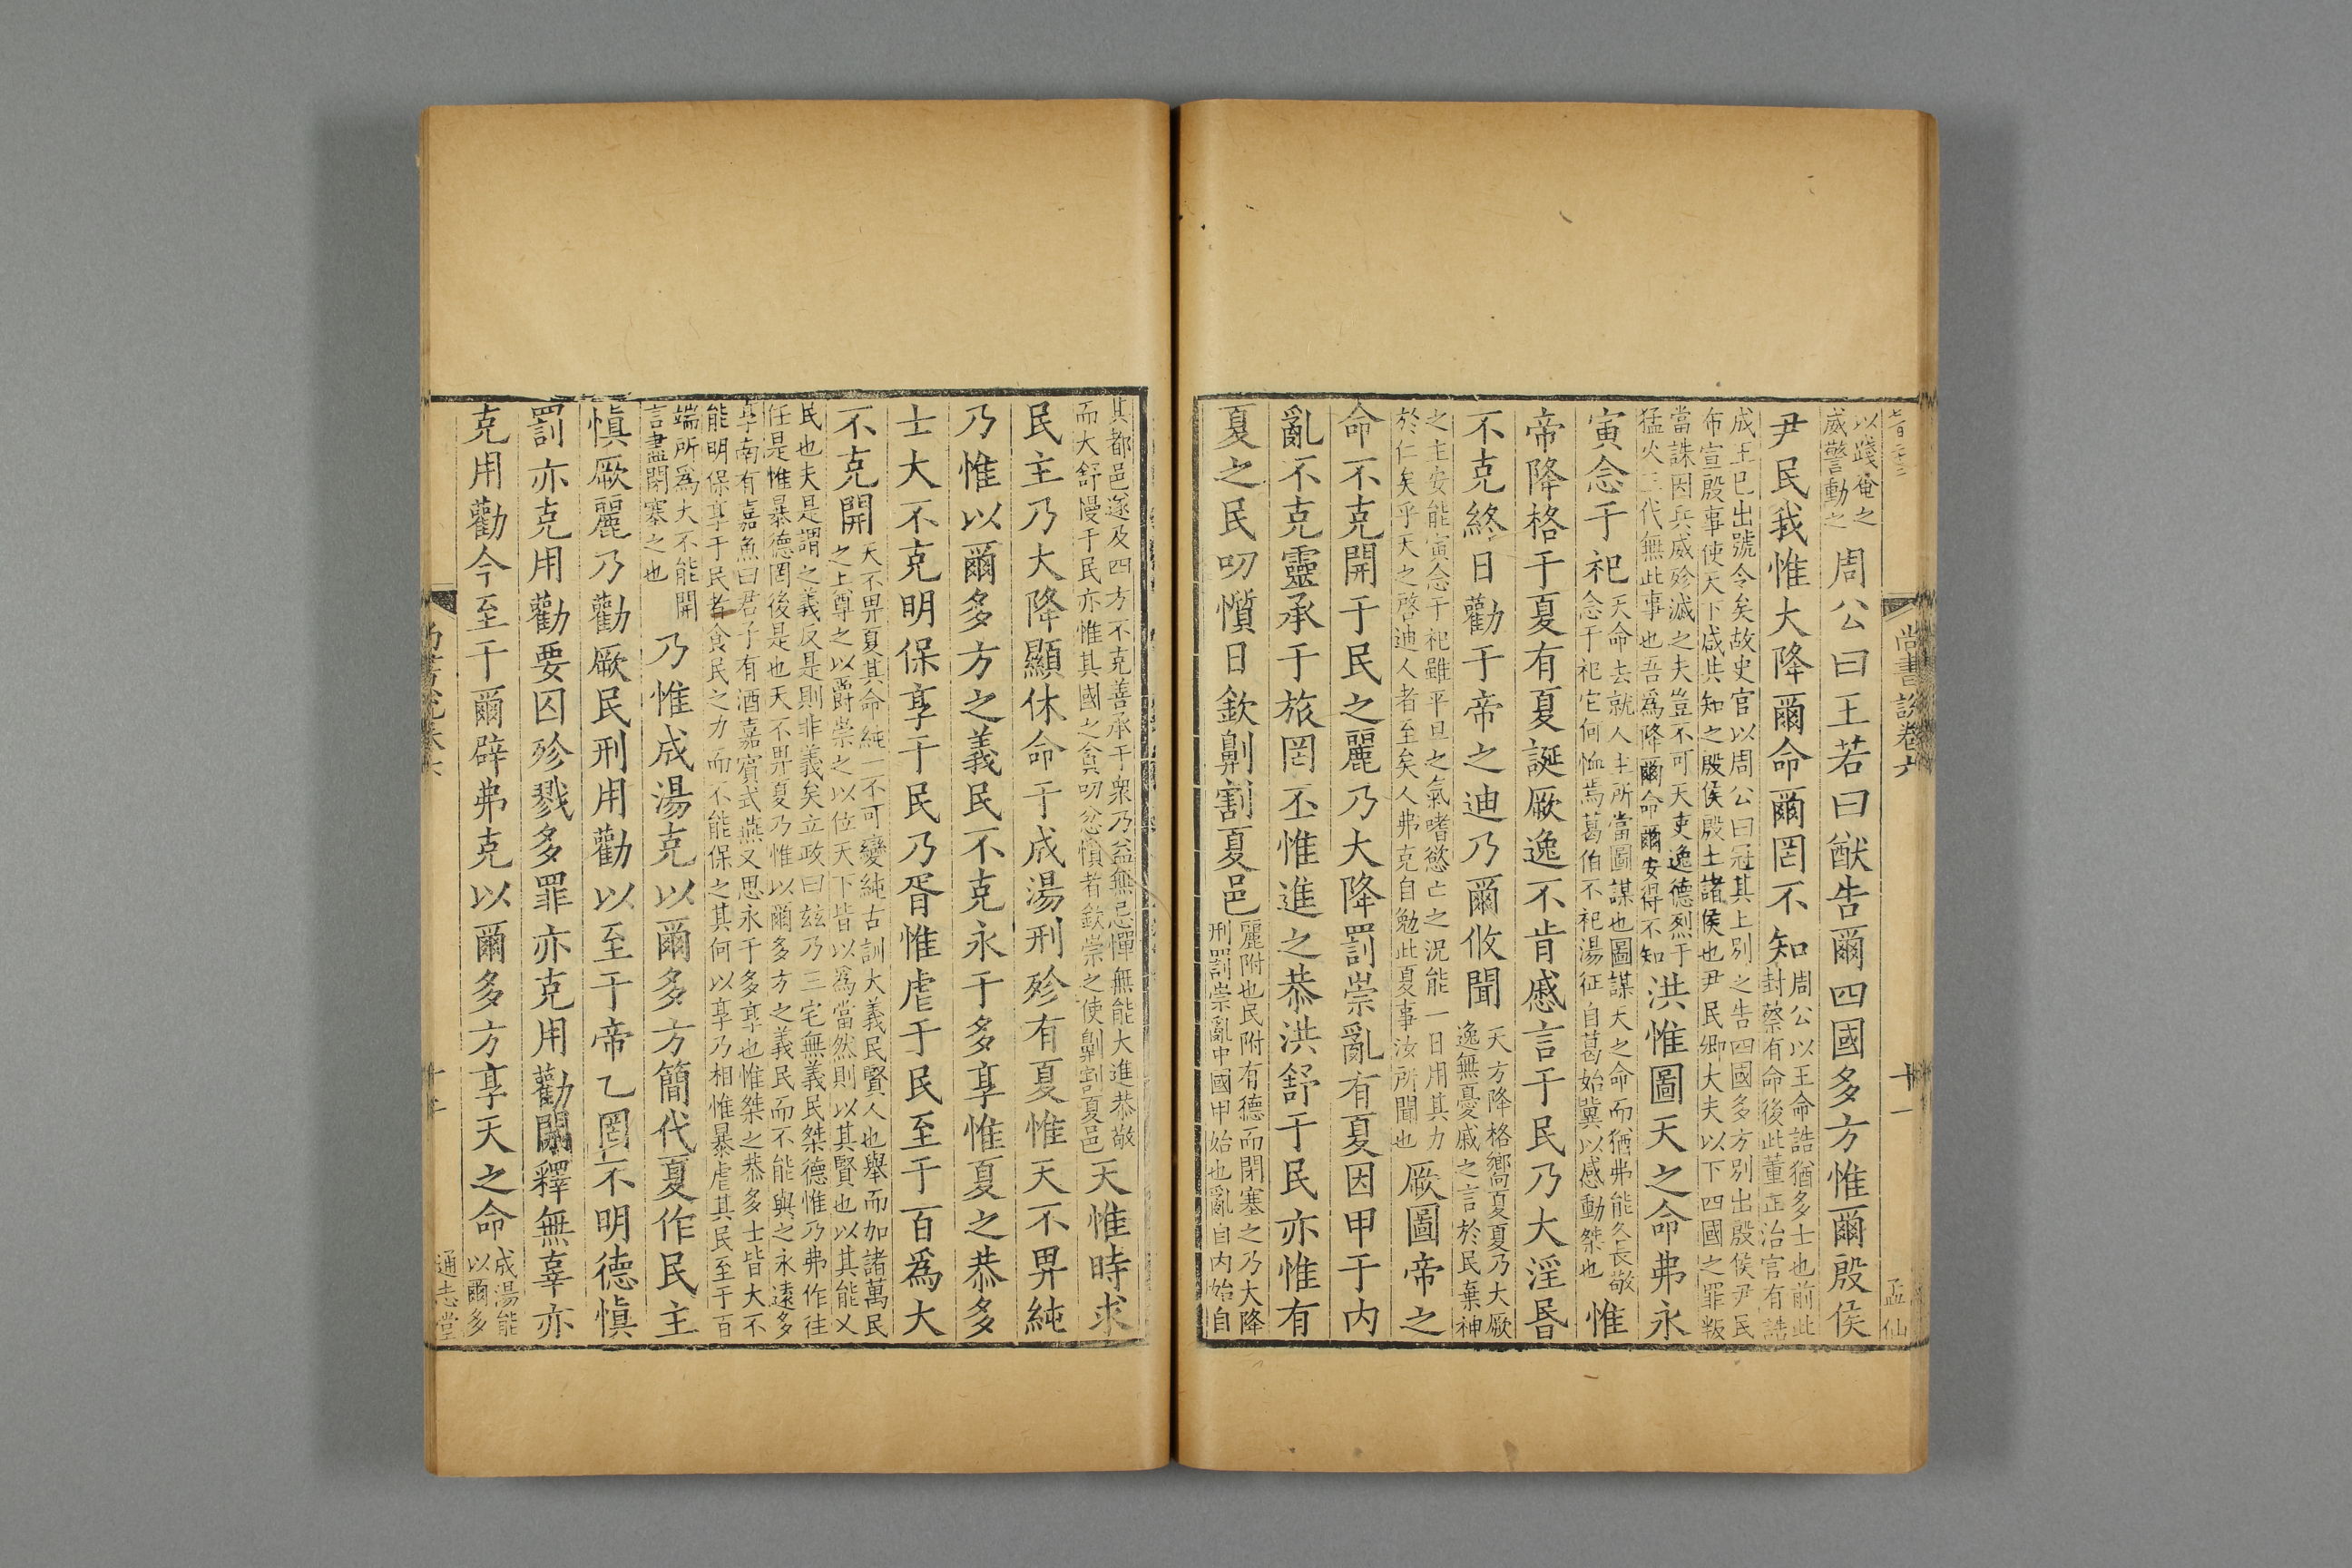 尚書說卷六 十一 孟仙
以踐奄之
威警動之
周公曰王若曰猷告爾四國多方惟爾殷侯
尹民我惟大降爾命爾罔不知
周公以王命誥猶多士也前此
封蔡有命後此董正治官有誥
成王已出號令矣故史官以周公曰冠其上別之告四國多方別出殷侯尹民
布宣殷事使天下咸共知之殷侯殷士諸侯也尹民卿大夫以下四國之罪叛
當誅因兵威殄滅之夫豈不可天吏逸德烈于
猛火三代無此事也吾為降爾命爾安得不知
洪惟圖天之命弗永
寅念于祀
天命去就人主所當圖謀也圖謀天之命而猶弗能久長敬
念于祀它何恤焉葛伯不祀湯征自葛始冀以感動桀也
惟
帝降格于夏有夏誕厥逸不肯慼言于民乃大淫昬
不克終日勸于帝之迪乃爾攸聞
天方降格嚮夏夏乃大厥
逸無憂戚之言於民棄神
之主安能寅念于祀雖平旦之氣嗜慾亡之況能一日用其力
於仁矣乎天之啓迪人者至矣人弗克自勉此夏事汝所聞也
厥圖帝之
命不克開于民之麗乃大降罰崇亂有夏因甲于內
亂不克靈承于旅罔丕惟進之恭洪舒于民亦惟有
夏之民叨懫日欽劓割夏邑
麗附也民附有德而閉塞之乃大降
刑罰崇亂中國甲始也亂自內始自
其都邑遂及四方不克善承于衆乃益無忌憚無能大進恭敬
而大舒慢于民亦惟其國之貪叨忿懫者欽崇之使劓割夏邑
天惟時求
民主乃大降顯休命于成湯刑殄有夏惟天不畀純
乃惟以爾多方之義民不克永于多享惟夏之恭多
士大不克明保享于民乃胥惟虐于民至于百爲大
不克開
天不畀夏其命純一不可變純古訓大義民賢人也舉而加諸萬民
之上尊之以爵崇之以位天下皆以為當然則以其賢也以其能乂
民也夫是謂之義反是則非義矣立政曰茲乃三宅無義民桀德惟乃弗作往
任是惟暴德罔後是也天不畀夏乃惟以爾多方之義民而不能與之永遠多
享南有嘉魚曰君子有酒嘉賓式燕又思永于多享也惟桀之恭多士皆大不
能明保享于民者食民之力而不能保之其何以享乃相惟暴虐其民至于百
端所爲大不能開
言盡閉塞之也
乃惟成湯克以爾多方簡代夏作民主
慎厥麗乃勸厥民刑用勸以至于帝乙罔不明德慎
罰亦克用勸要囚殄戮多罪亦克用勸開釋無辜亦
克用勸今至于爾辟弗克以爾多方享天之命
成湯能
以爾多
通志堂